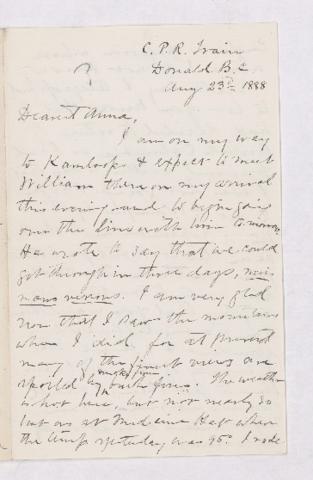 C. P. R. Train
Donald B.C
Aug 23rd 1888
Dearest Anna,
I am on my way
to Kamloops & expect to meet
William there on my arrival
this evening and to begin going
over the line with him tomorrow
He wrote to say that we could
get through in three days,
I am very glad
now that I saw the mountains
when I did for at present
many of the finest views are
spoiled by smoke from bush fires. The weather
is hot here, but not nearly so
hot as at Medicine Hat where
the temp yesterday was 95°. I rode